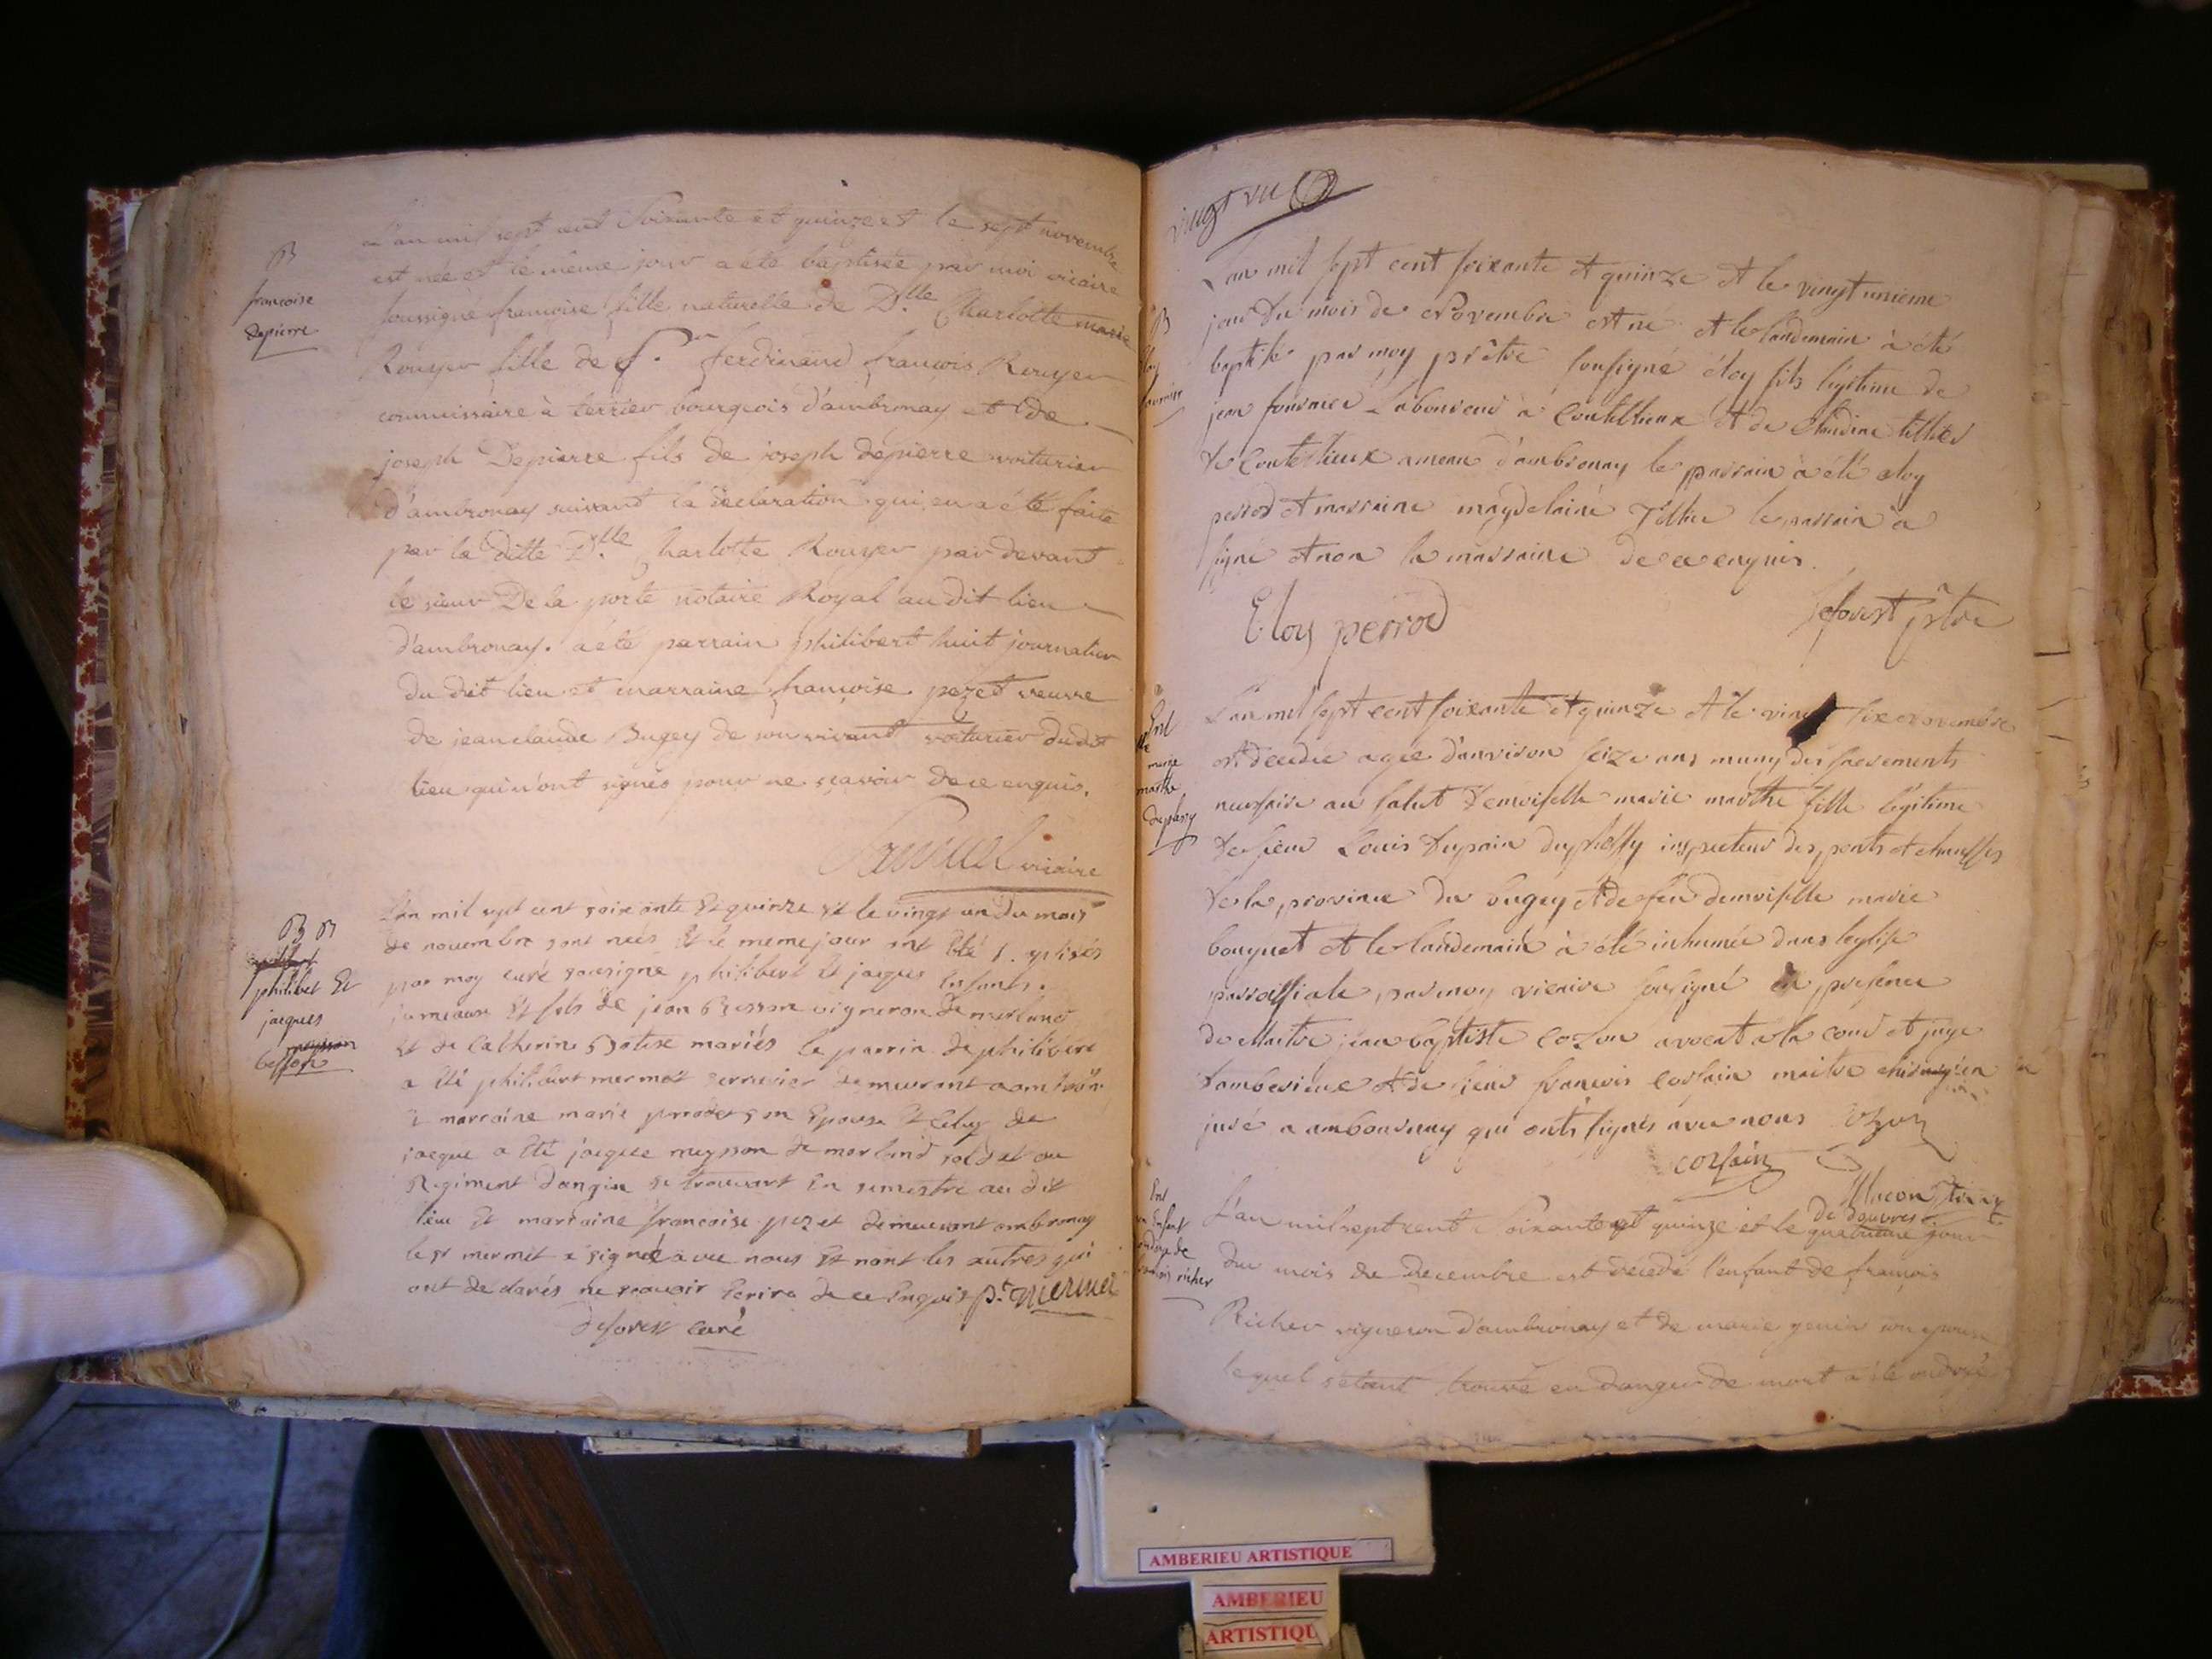 B
francoise
Depierre
L'an mil sept cent Soixante et quinze et le sept novembre
est née et le même jour a été baptisée par moi vicaire
soussigné françoise fille naturelle de D.lle Charlotte marie
Rouyer fille de S.r ferdinand françois Rouyer
commissaire à terrier bourgeois d'ambronay et de
joseph Depierre fils de joseph depierre voiturier
d'ambronay suivant la déclaration qui en a été faite
par la ditte D.lle Charlotte Rouyer par devant
le sieur De la porte notaire Royal au dit lieu
d'ambronay. a été parrain philibert huit journalier
du dit lieu et marraine françoise pezet veuve
de jean claude Bugey de son vivant voiturier du dit
lieu qui n'ont signés pour ne sçavoir de ce enquis.
vicaire
B B
philibet Et
jacques
besson
L'an mil sept cent soixante Et quinze Et le vingt un du mois
de novembre sont néés Et le meme jour ont Eté
par moy curé sousigne philibert Et jacque Enfants
jumeaux Et fils de jean Besson vigneron de merland
Et de Catherine mariés le parrin de philibere
a Eté philibert mermet serrurier demeurant a
marraine marie son Epouse Et Celuy de
jacque a Eté jacque meysson de morland soldat au
Regiment d'angin se trouvant En semestre au dit
lieu Et marraine francoise pezet demeurant ambronay
le sr mermet a signé avec nous Et nont les autres qui
ont declarés ne scavoir Ecrire de ce Enquis p.t mermet
deforest curé
vingt un
B
L'an mil sept cent soixante et quinze et le vingt unieme
jour du mois de Novembre est né et le landemain à été
baptisé par moy prêtre sousigné éloy fils légitime de
jean fournier Laboureur à Coutelieux et de Claudine
de Coutelieux ameau d'ambronay le parrain à été eloy
perrod et marraine magdelaine le parrain a
signé et non la marraine de ce enquis.
Eloy perrod
deforest prtre
marie
marthe
duplessy
L'an mil sept cent soixante et quinze et le vingt six novembre
est decedée agée d'anviron seize ans muny des sacrements
necessaire au salut demoiselle marie marthe fille légitime
de sieur Louis dupain duplessy inspecteur des ponts et chaussées
de la province du bugey et de feu demoiselle marie
bouquet et le landemain à été inhumée dans l'eglise
parroissiale par moy vicaire sousigné en presence
de Maitre jean baptiste cozon avocat a la cour et juge
d'amberieux et de sieur francois corsain maitre chirurgien
juré a ambournay qui onts signés avec nous Cozon
corsain
de douvres
un Enfant
ondoyé de
francois richer
L'an mil sept cent Soixante et quinze et le quatrieme jour
du mois de decembre est decedé l'enfant de françois
Richer vigneron d'ambronay et de marie genin son epouse
lequel s'etant trouvé en danger de mort a été ondoyé
AMBERIEU ARTISTIQUE
AMBERIEU
ARTISTIQU